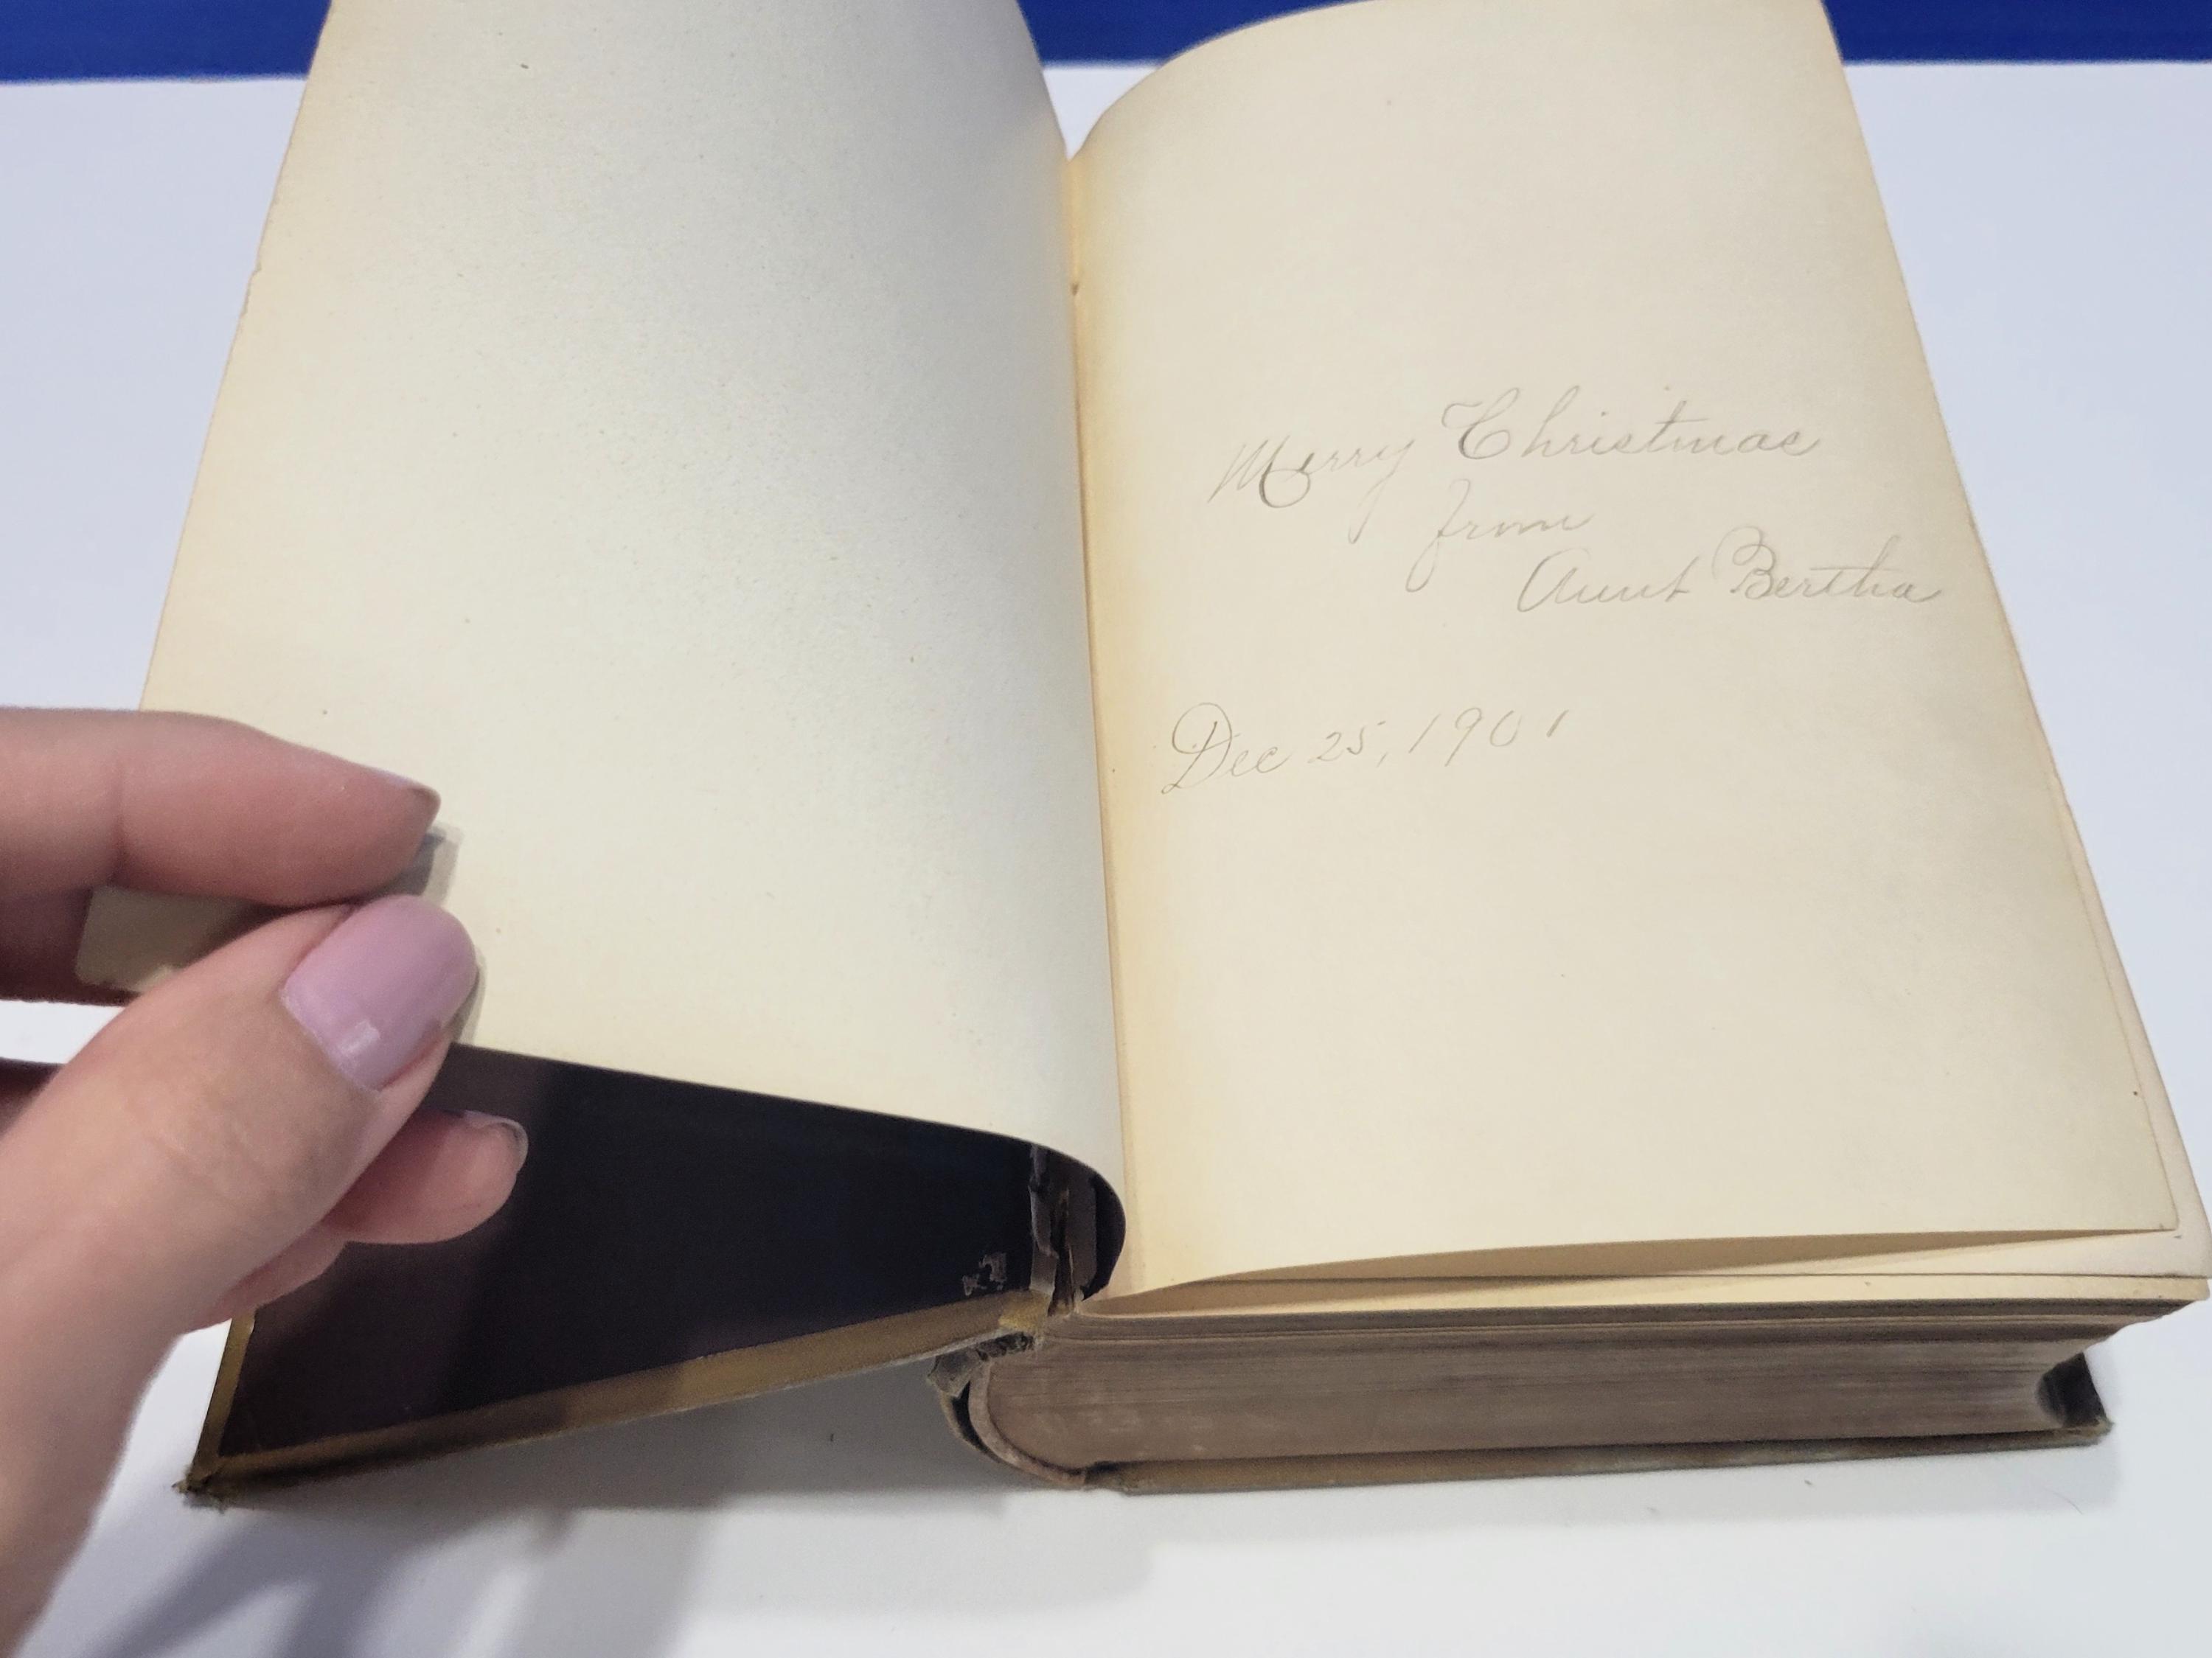 Merry Christmas
from
Aunt Bertha
Dec 25, 1901